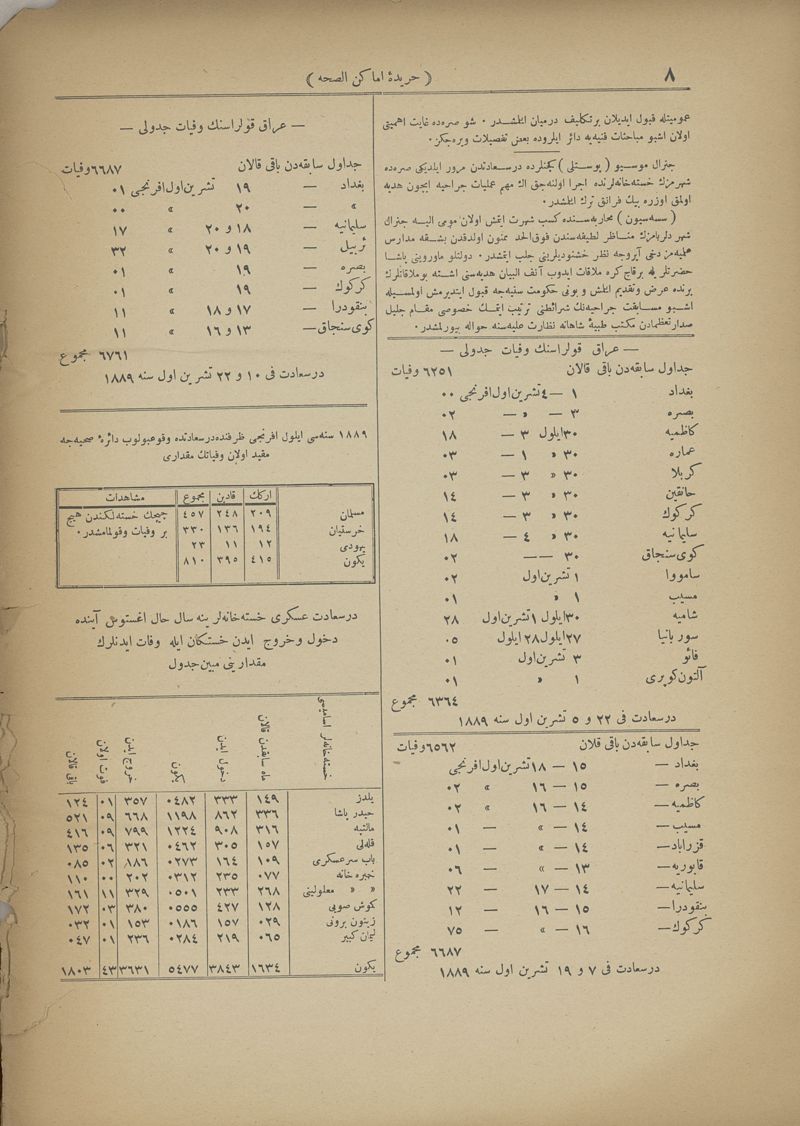 ٨
( جريدهٔ اماكن الصحه )
عموميتله قبول ايديلان برتكليف درميان ايلمشدر ٠ شو صره‌ده غايت اهميتى
اولان اشبو مباحثات فنيه‌يه دائر ايلروده بعض تفصيلات ويره‌جكز ٠
جنرال موسيو ( پوستلى ) كچنلرده درسعادتدن مرور ايلديكى صره‌ده
شهرمزك خسته‌خانه‌لرنده اجرا اولنه‌جق اك مهم عمليات جراحيه ايچون هديه
اولمق اوزره بيك فرانق ترك ايلمشدر ٠
( سسه‌سيون ) محاربه‌سنده كسب شهرت ايتمش اولان مومى اليه جنرال
شهر دلربامزك مناظر لطيفه‌سندن فوق‌الحد ممنون اولدقدن بشقه مدارس
علميه‌مز دخى آيروجه نظر خشنوديلرينى جلب ايتمشدر ٠ دولتلو ماوروينى پاشا
حضرتلريله برقاچ كره ملاقات ايدوب آنف البيان هديه‌سنى اشته بوملاقاتلرك
برنده عرض وتقديم ايتمش و بونى حكومت سنيه‌جه قبول ايتديرمش اولمسيله
اشبو مسابقت جراحيه‌نك شرائطنى ترتيب ايتمك خصوصى مقام جليل
صدارتعظمادن مكتب طبيهٔ شاهانه نظارت عليه‌سنه حواله بيورلمشدر ٠
— عراق قولراسنك وفيات جدولى —
جداول سابقه‌دن باقى قالان ٦٢٥١ وفيات
بغداد ١ —٤ تشرين‌اول‌افرنجى ٠٠
بصره ٣ — » — ٠٢
كاظميه ٣٠ايلول ٣ — ١٨
عماره ٣٠ » ١ — ٠٣
كربلا ٣٠ » ٣ — ٠٣
خانقين ٣٠ » ٣ — ١٤
كركوك ٣٠ » ٣ — ١٤
سليمانيه ٣٠ » ٤ — ١٨
كوى‌سنجاق ٣٠ —— ٠٢
سامووا ١ تشرين‌اول ٠٢
مسيب ١ » ٠١
شاميه ٣٠ايلول ١ تشرين‌اول ٢٨
سور بانيا ٢٧ايلول٢٨ ايلول ٠٥
فائو ٣ تشرين‌اول ٠١
آلتون‌كوپرى ١ » ٠١
٦٣٦٤ مجموع
درسعادت فى ٢٢ و ٥ تشرين اول سنه ١٨٨٩
جداول سابقه‌دن باقى قلان ٦٥٦٢وفيات
بغداد — ١٥ — ١٨ تشرين‌اول‌افرنجى
بصره — ١٥ — ١٦ » ٠٢
كاظميه — ١٤ — ١٦ » ٠٢
مسيب — ١٤ — » — ٠١
قزراباد— ١٤ — » — ٠١
قابوريه— ١٣ — » — ٠٦
سليمانيه— ١٤ — ١٧ — ٢٢
بنقودرا— ١٥ — ١٦ — ١٢
كركوك— ١٦ — » — ٧٥
٦٦٨٧ مجموع
درسعادت فى ٧ و ١٩ تشرين اول سنه ١٨٨٩
— عراق قولراسنك وفيات جدولى —
جداول سابقه‌دن باقى قالان ٦٦٨٧وفيات
بغداد — ١٩ تشرين‌اول‌افرنجى ٠١
» — ٢٠ » ٠٠
سليمانيه — ١٨ و ٢٠ » ١٧
ئربيل — ١٩ و ٢٠ » ٣٢
بصره — ١٩ » ٠١
كركوك — ١٩ » ٠١
بنقودرا — ١٧ و ١٨ » ١١
كوى‌سنجاق— ١٣ و ١٦ » ١١
٦٧٦١ مجموع
درسعادت فى ١٠ و ٢٢ تشرين اول سنه ١٨٨٩
١٨٨٩ سنه‌سى ايلول افرنجى ظرفنده‌درسعادتده وقوعبولوب دائرهٔ صحيه‌جه
مقيد اولان وفياتك مقدارى
اركك قادين مجموع مشاهدات
مسلمان ٢٠٩ ٢٤٨ ٤٥٧ چيچك خسته‌لكندن هيچ
خرستيان ١٩٤ ١٣٦ ٣٣٠ بر وفيات وقوبولمامشدر ٠
يهودى ١٢ ١١ ٢٣
يكون ٤١٥ ٣٩٥ ٨١٠
درسعادت عسكرى خسته‌خانه‌لرينه سال حال اغستوسى آينده
دخول وخروج ايدن خستكان ايله وفات ايدنلرك
مقدارينى مبين‌جدول
خسته‌خانه‌لر اساميسى ماه سابقدن قالان دخول ايدن يكون خروج ايدن فوت اولان باقى قالان
يلدز ١٤٩ ٣٣٣ ٠٤٨٢ ٣٥٧ ٠١ ١٢٤
حيدر پاشا ٣٣٦ ٨٦٢ ١١٩٨ ٦٦٨ ٠٩ ٥٢١
مالتپه ٣١٦ ٩٠٨ ١٢٢٤ ٧٩٩ ٠٩ ٤١٦
قله‌لى ١٥٧ ٣٠٥ ٠٤٦٢ ٣٢١ ٠٦ ١٣٥
باب سرعسكرى ١٠٩ ١٦٤ ٠٢٧٣ ١٨٦ ٠٢ ٠٨٥
خمبره خانه ٠٧٧ ٢٣٥ ٠٣١٢ ٢٠٢ ٠٠ ١١٠
» » معلولينى ٢٦٨ ٢٣٣ ٠٥٠١ ٣٢٩ ١١ ١٦١
كوش صويى ١٢٨ ٤٢٧ ٠٥٥٥ ٣٨٠ ٠٣ ١٧٢
زيتون برونى ٠٢٩ ١٥٧ ٠١٨٦ ١٥٣ ٠١ ٠٣٢
ليمان كبير ٠٦٥ ٢١٩ ٠٢٨٤ ٢٣٦ ٠١ ٠٤٧
يكون ١٦٣٤ ٣٨٤٣ ٥٤٧٧ ٣٦٣١ ٤٣ ١٨٠٣